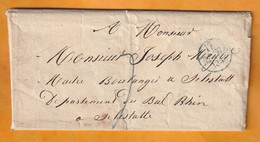 A Monsieur
Monsieur Joseph
Maitre Boulanger a Selestatt
Departement du Bas Rhin
a Selestatte